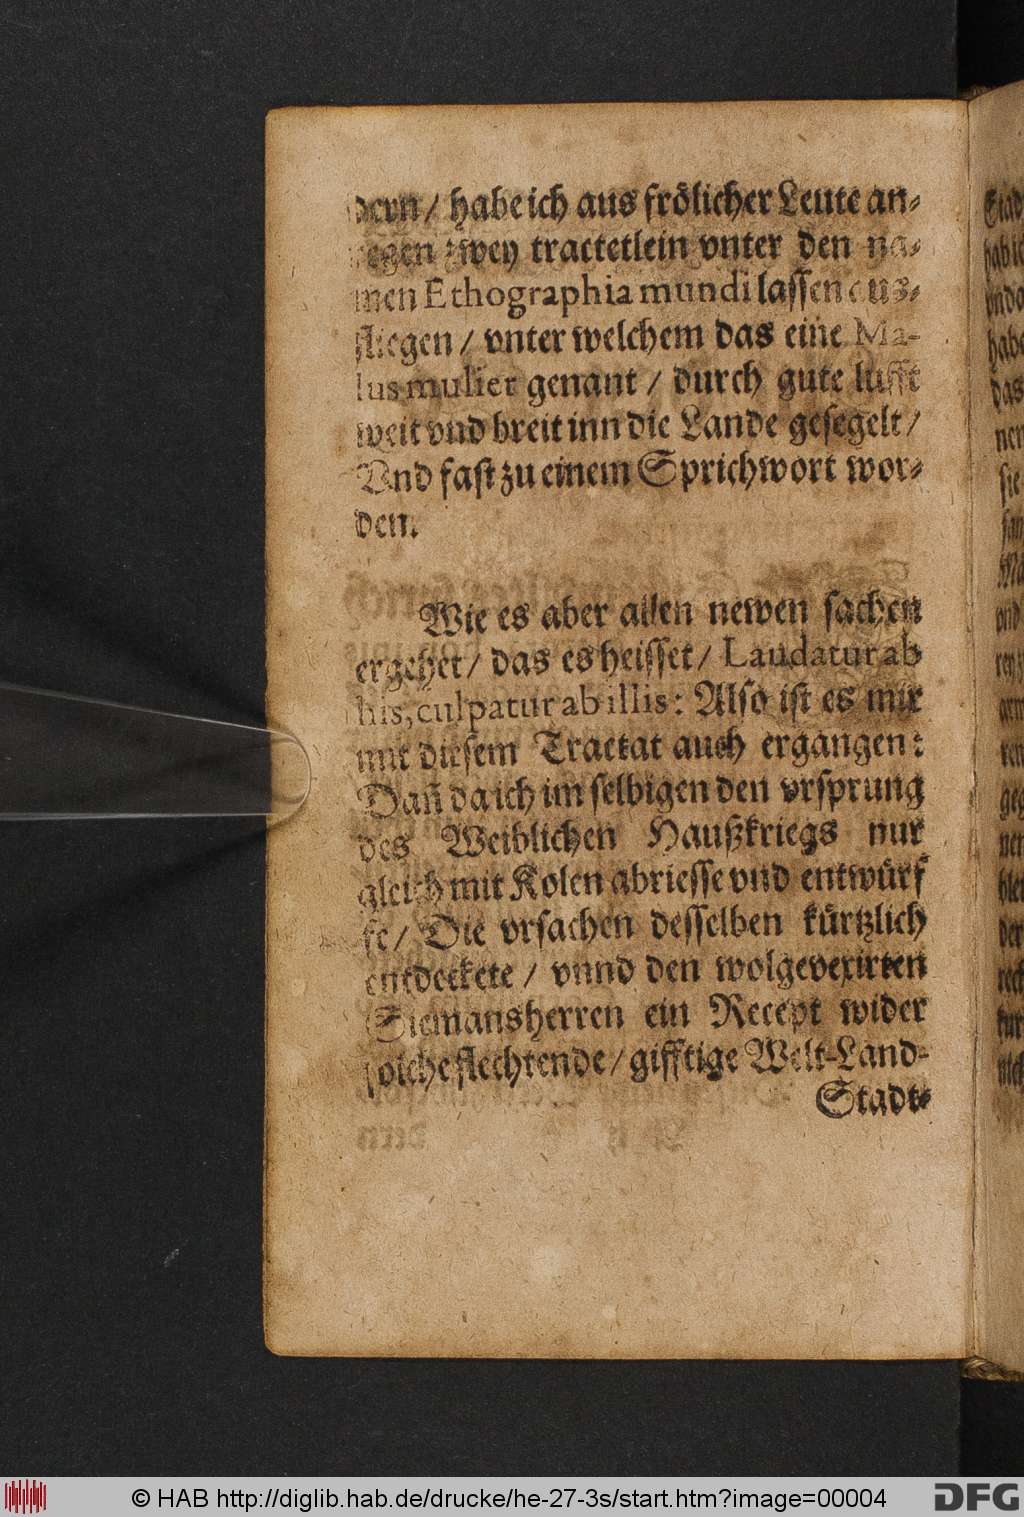 dern / habe ich aus frölicher Leute an⸗
regen zwey tractetlein vnter den na⸗
men Ethographia mundi lassen aus⸗
fliegen / vnter welchem das eine Ma-
lus mulier genant / durch gute lufft
weit vnd breit inn die Lande gesegelt /
Vnd fast zu einem Sprichwort wor⸗
den.
Wie es aber allen newen sachen
ergehet / das es heisset / Laudatur ab
his, culpatur ab illis: Also ist es mir
mit diesem Tractat auch ergangen:
Dañ da ich im selbigen den vrsprung
des Weiblichen Haußkriegs nur
gleich mit Kolen abriesse vnd entwürf
fe / Die vrsachen desselben kürtzlich
entdeckete / vnnd den wolgevexirten
Siemansherren ein Recept wider
solche flechtende / gifftige Welt-Land-
Stadt⸗
© HAB http://diglib.hab.de/drucke/he-27-3s/start.htm?image=00004
DFG